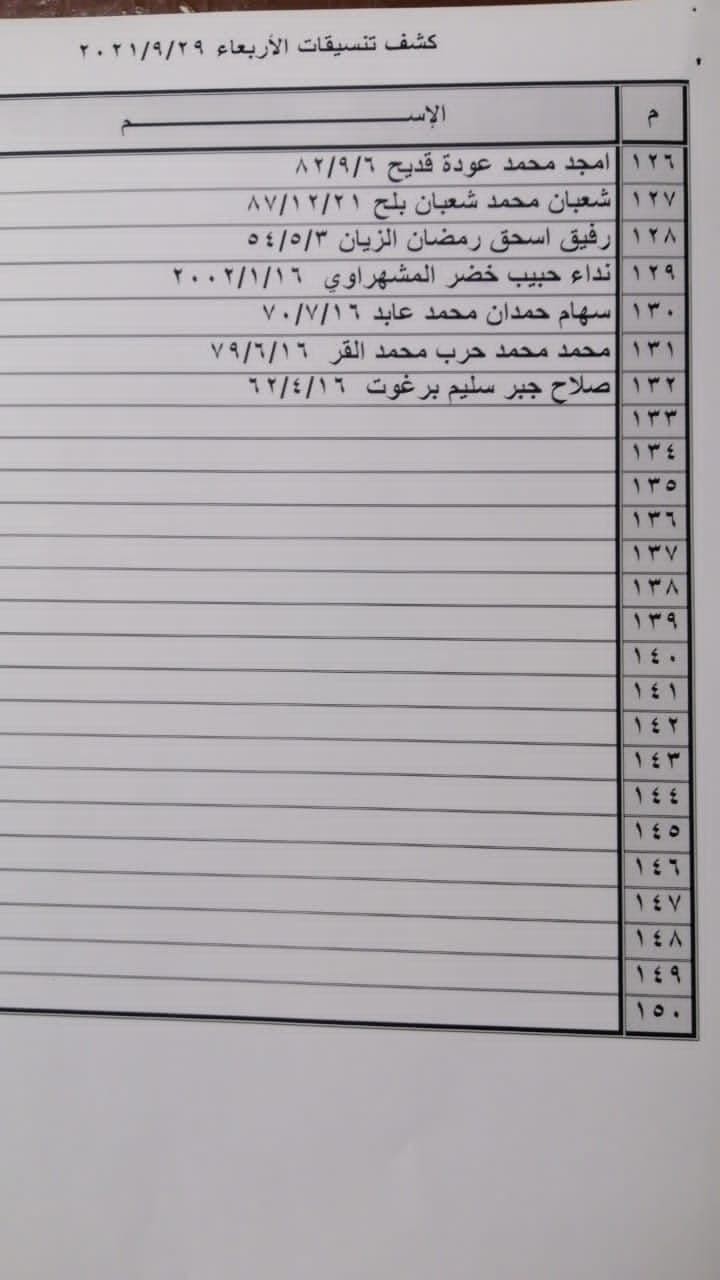 كشف تنسيقات الأربعاء ٢٠٢١/٩/٢٩
م الإســـــــــم
١٢٦ امجد محمد عودة قديح ٨٢/٩/٦
١٢٧ شعبان محمد شعبان بلح ٨٧/١٢/٢١
١٢٨ رفيق اسحق رمضان الزيان ٥٤/٥/٣
١٢٩ نداء حبيب خضر المشهراوي ٢٠٠٢/١/١٦
١٣٠ سهام حمدان محمد عابد ٧٠/٧/١٦
١٣١ محمد محمد حرب محمد القر ٧٩/٦/١٦
١٣٢ صلاح جبر سليم برغوت ٦٢/٤/١٦
١٣٣
١٣٤
١٣٥
١٣٦
١٣٧
١٣٨
١٣٩
١٤٠
١٤١
١٤٢
١٤٣
١٤٤
١٤٥
١٤٦
١٤٧
١٤٨
١٤٩
١٥٠